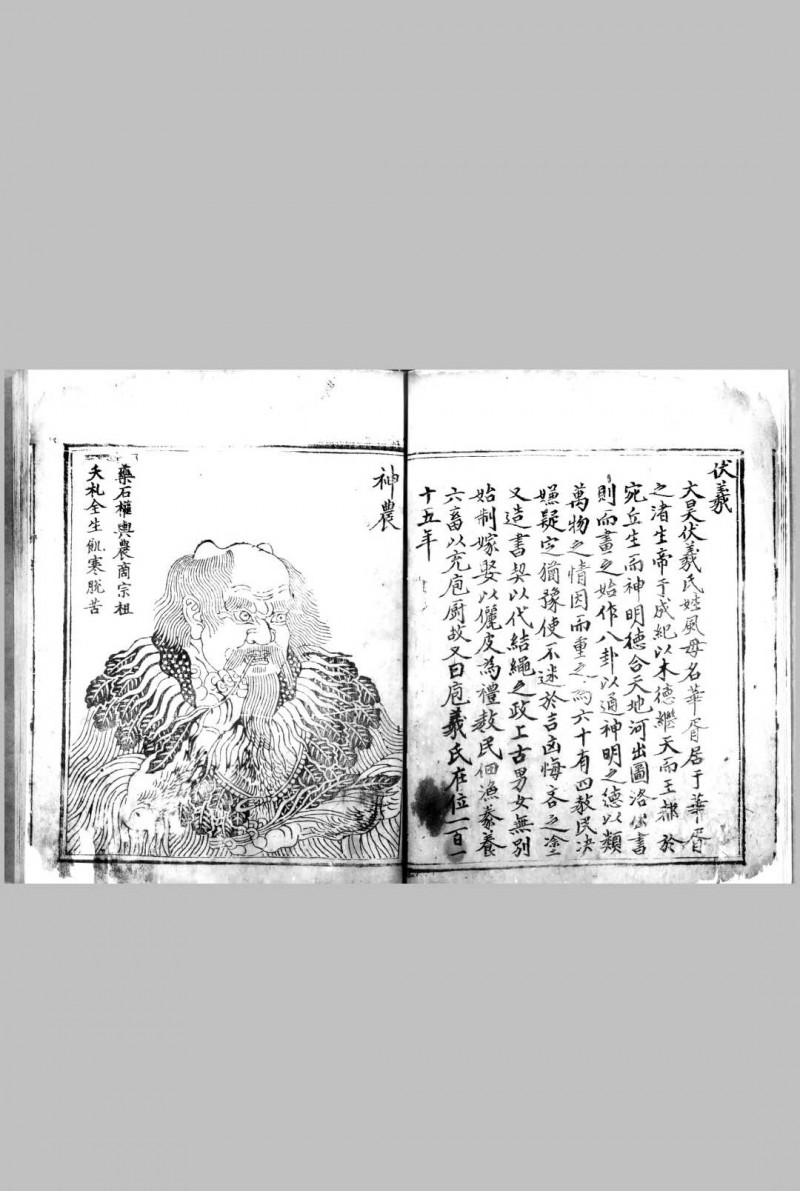 伏羲
大昊伏羲氏姓風母名華胥居于華胥
之渚生帝于成紀以木德繼天而王都於
宛丘生而神明德合天地河出圖洛出書
則而畫之始作八卦以通神明之德以類
萬物之情因而重之為六十有四教民決
嫌疑定猶豫使不迷於吉凶悔吝之塗
又造書契以代結繩之政上古男女無別
始制嫁娶以儷皮為禮教民佃漁豢養
六畜以充庖厨故又曰庖羲氏在位一百一
十五年
神農
藥石權輿農商宗祖
夭札全生飢寒脫苦